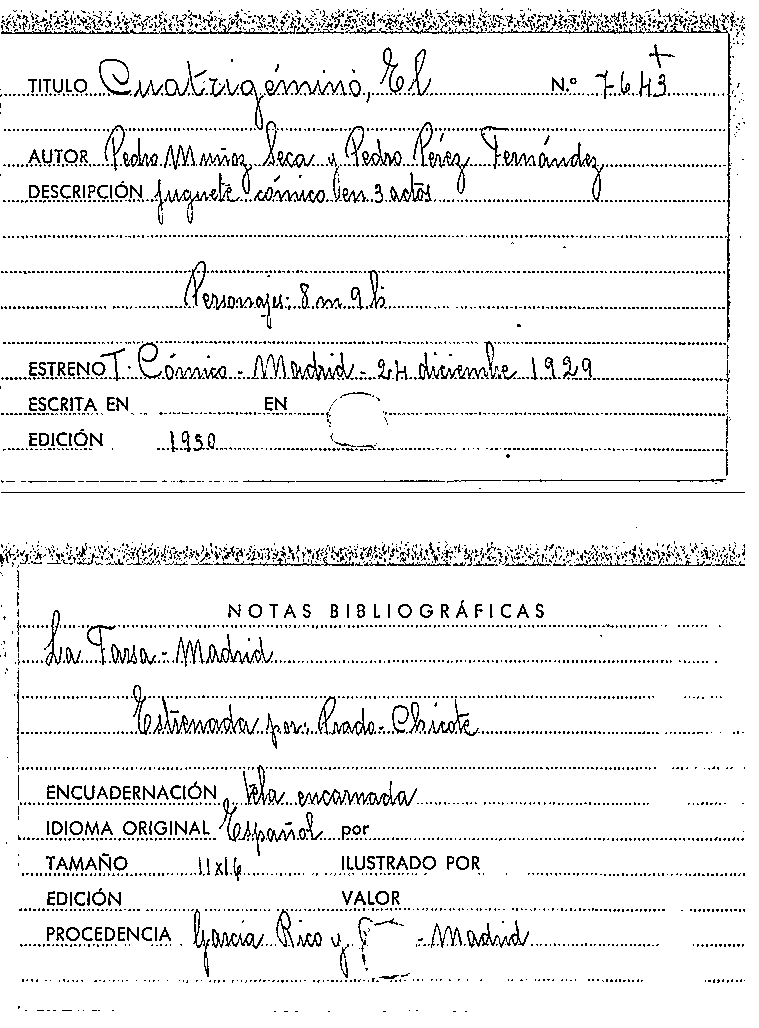 TITULO Cuatrigémino, El N.º 7643
AUTOR Pedro Muñoz Seca y Pedro Pérez Fernández
DESCRIPCIÓN juguete cómico en 3 actos
Personajes: 8 m 9 h
ESTRENO T. Cómico - Madrid - 24 diciembre 1929
ESCRITA EN EN
EDICIÓN 1930
NOTAS BIBLIOGRÁFICAS
La Farsa - Madrid
Estrenada por: Prado-Chicote
ENCUADERNACIÓN tela encarnada
IDIOMA ORIGINAL Español por
TAMAÑO 11x16 ILUSTRADO POR
EDICIÓN VALOR
PROCEDENCIA García Rico y - Madrid